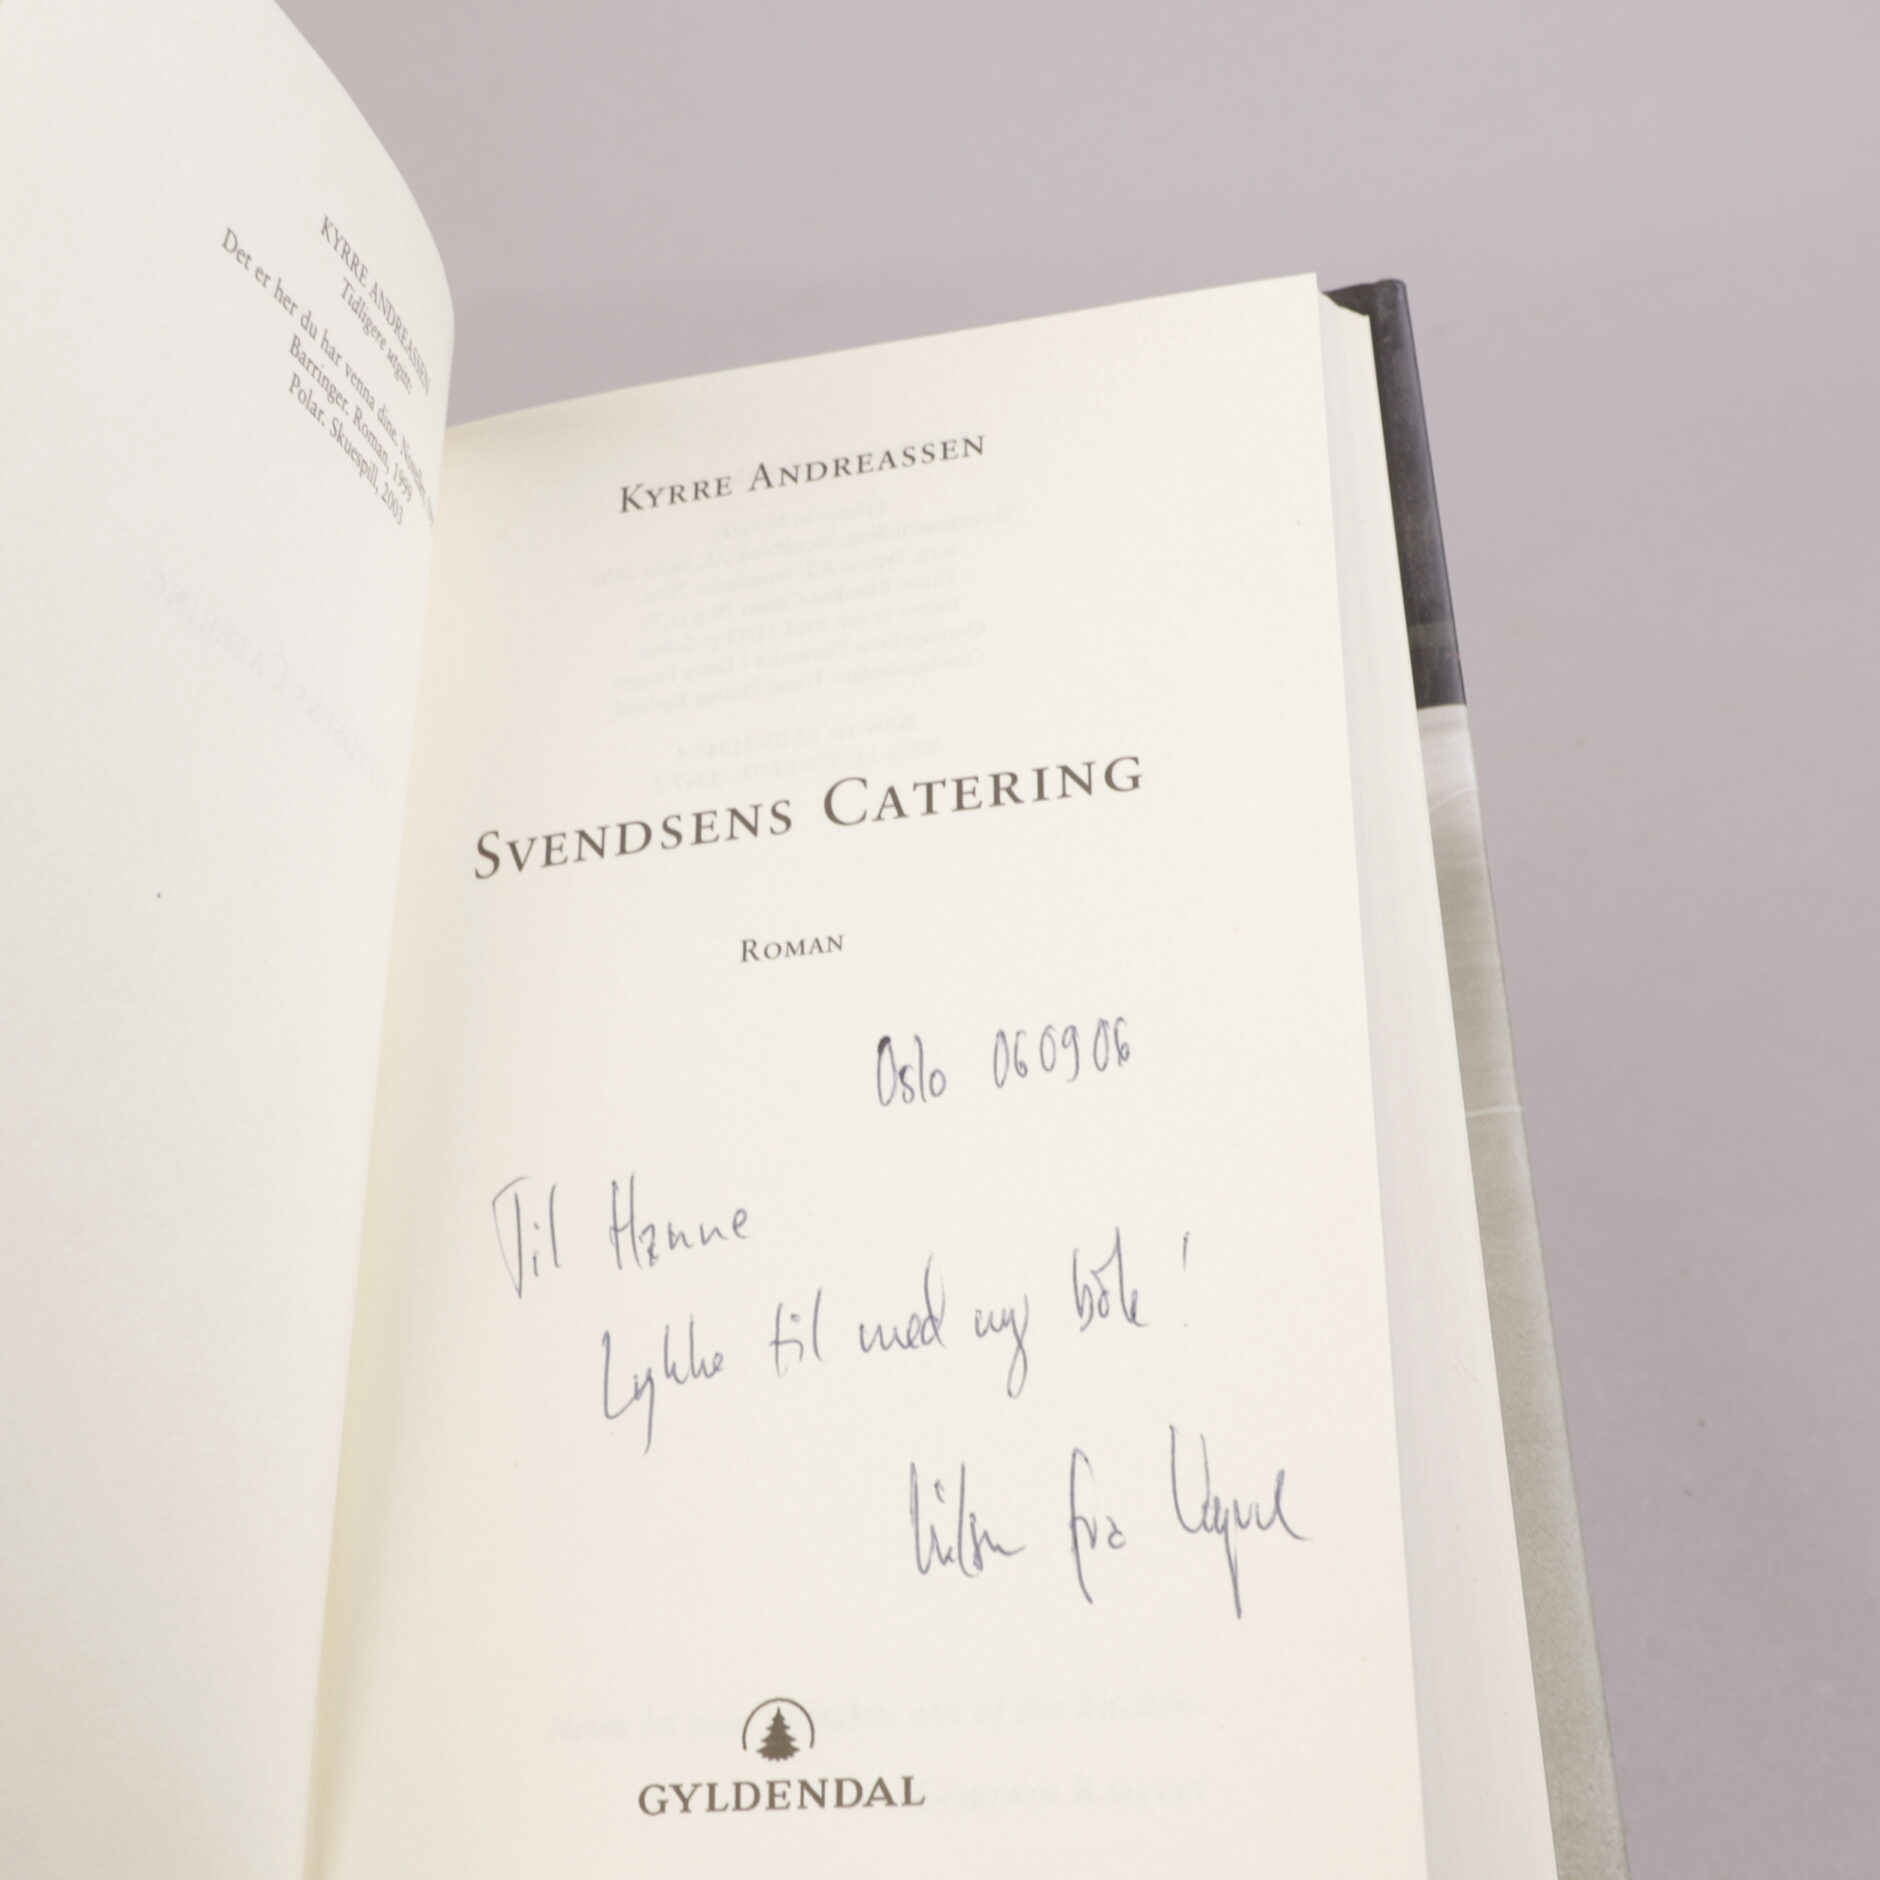 KYRRE ANDREASSEN
Tidligere utgitt:
Det er her du har venna dine. Noveller,
Barringer. Roman, 1999
Polar. Skuespill, 2003
KYRRE ANDREASSEN
SVENDSENS CATERING
ROMAN
Oslo 060906
Til Hanne
Lykke til med ny bok!
Hilsen fra
GYLDENDAL